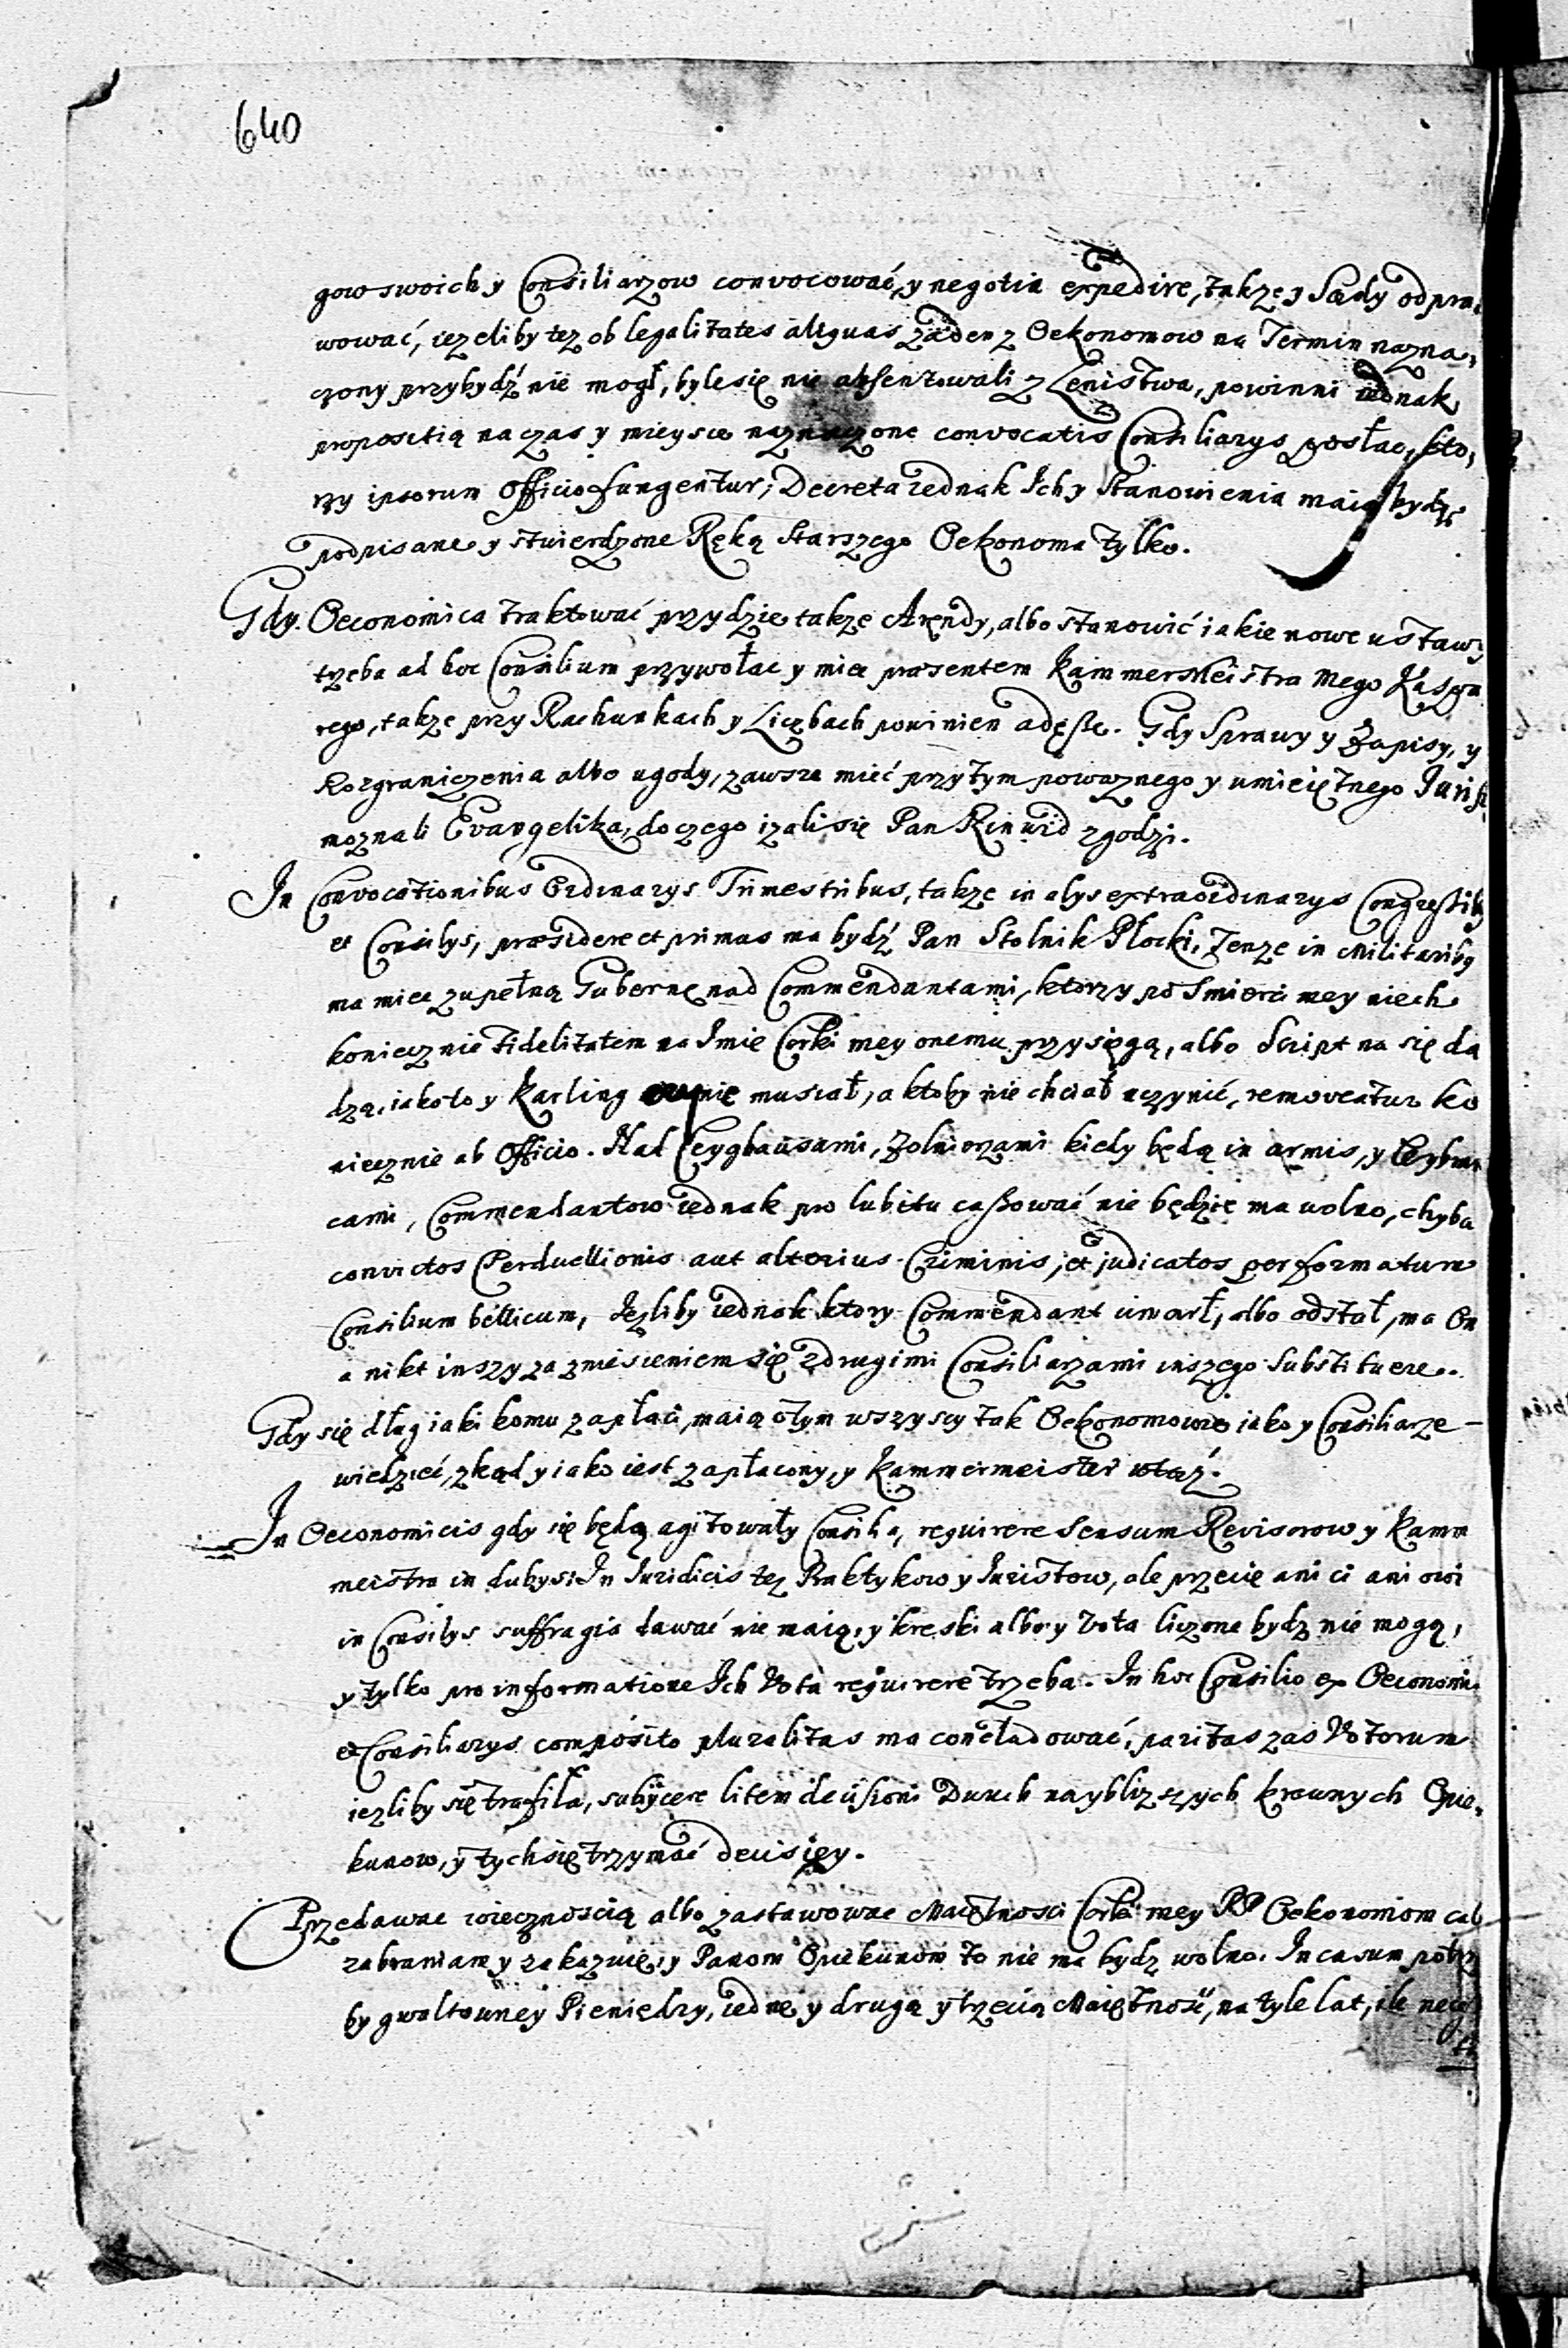 640
gow swoich y Consiliarzow convocować, y negotia expedire, takze y Sądy odpra,
wować, iezeliby tez ob legalitates aliquas żaden z Oekonomow na Termin nazna,
czony przybydź nie mogł, byle się nie absentowali z Lenistwa, powinni iednak
propositią na czas y mieysce naznaczone convocatis Consiliarys posłac, kto,
rzy ipsorum Officio fungentur; Decreta iednak Ich y Stanowienia maią bydź
podpisane y stwierdzone Ręką Starszego Oekonoma tylko.
Gdy Oeconomica traktować przydzie takze Arendy, albo stanowić iakie nowe ustawy
trzeba ad hoc Consilium przywołac y miec praesentem Kammermeistra mego Kaspa
rego, takze przy Rachunkach y Liczbach powinien adesse. Gdy Sprawy y Zapisy, y
Rozgraniczenia albo ugody, zawsze mieć przytym powaznego y umieiętnego Juris
moznali Evangelika, do czego izali się Pan Rinwid zgodzi.
In Convocationibus Ordinarys Trimestribus, takze in alys extraordinarys Congressib
et Consilys, praesidere et primas ma bydź Pan Stolnik Płocki, Tenze in Militarib
ma miec zupełną Gubernę nad Commendantami, ktorzy po Smierci mey niech
koniecznie fidelitatem na Imie Corki mey onemu przysięgą, albo Script na się da
dzą, iako to y Karling mnie musiał, a ktoby nie chciał uczynić, removeatur ko
niecznie ab Officio. Nad Ceyghausami, Zołnierzami kiedy będą in armis, y Wybran
cami, Commendantow iednak pro lubitu cassować nie będzie ma wolno, chyba
convictos Perduellionis aut alterius Criminis, et judicatos per formatum
Consilium bellicum, Jezliby iednak ktory Commendant umarł, albo odstał, ma On
a nikt inszy za zniesieniem się z drugimi Consiliarzami inszego Substituere.
Gdy się dług iaki komu zapłaci, maią o tym wszyscy tak Oekonomowie iako y Consiliarze
wiedzieć, zkąd y iako iest zapłacony, y Kammermeister
In Oeconomicis gdy się będą agitowały Consilia, requirere Sensum Revisorow y Kamm
meistra in dubys; In Juridicis tez Praktykow y Juristow, ale przecie ani ci ani owi
in Consilys suffragia dawać nie maią, y kreski albo y Vota liczone bydz nie mogą,
y tylko pro informatione Ich Vota requirere trzeba. In hoc Consilio ex Oeconomi
et Consiliarys composito pluralitas ma concludować, paritas zas Votorum
iezliby się trafiła, subijcere litem decisioni Dwuch nayblizszych krewnych Opie,
kunow, y tych się trzymać decisięy.
Przedawac wiecznoscią albo zastawowac Maiętnosci Corki mey PP Oekonomom cal
zabraniam y zakazuię, y Panom Opiekunom to nie ma bydz wolno. In casum potrz
by gwaltowney Pieniędzy, iednę y drugą y trzecią Maiętność, na tyle lat, ile nece